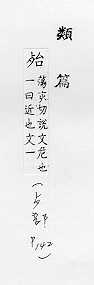 類篇
殆
蕩亥切説文危也
一曰近也文一
(歺部 P142)